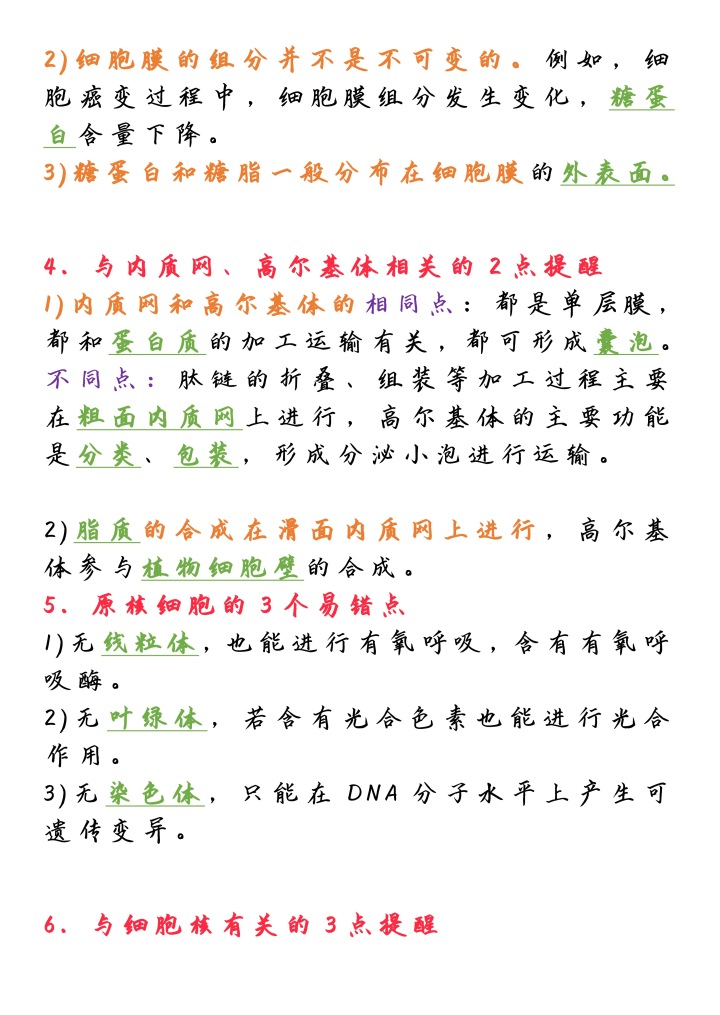 2)细胞膜的组分并不是不可变的。例如，细
胞癌变过程中，细胞膜组分发生变化，糖蛋
白含量下降。
3)糖蛋白和糖脂一般分布在细胞膜的外表面。
4. 与内质网、高尔基体相关的2点提醒
1)内质网和高尔基体的相同点：都是单层膜，
都和蛋白质的加工运输有关，都可形成囊泡。
不同点：肽链的折叠、组装等加工过程主要
在粗面内质网上进行，高尔基体的主要功能
是分类、包装，形成分泌小泡进行运输。
2)脂质的合成在滑面内质网上进行，高尔基
体参与植物细胞壁的合成。
5. 原核细胞的3个易错点
1)无线粒体，也能进行有氧呼吸，含有有氧呼
吸酶。
2)无叶绿体，若含有光合色素也能进行光合
作用。
3)无染色体，只能在DNA分子水平上产生可
遗传变异。
6. 与细胞核有关的3点提醒